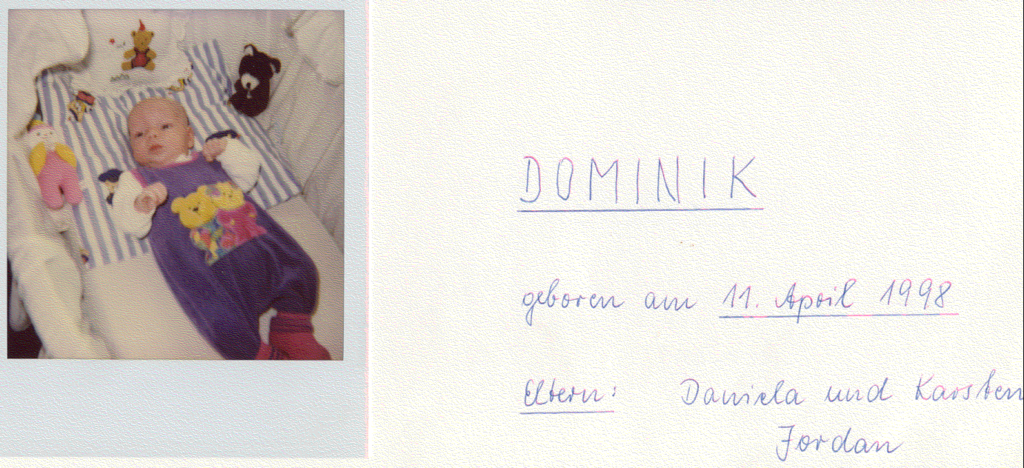 DOMINIK
geboren am 11. April 1998
Eltern: Daniela und Karsten
Jordan